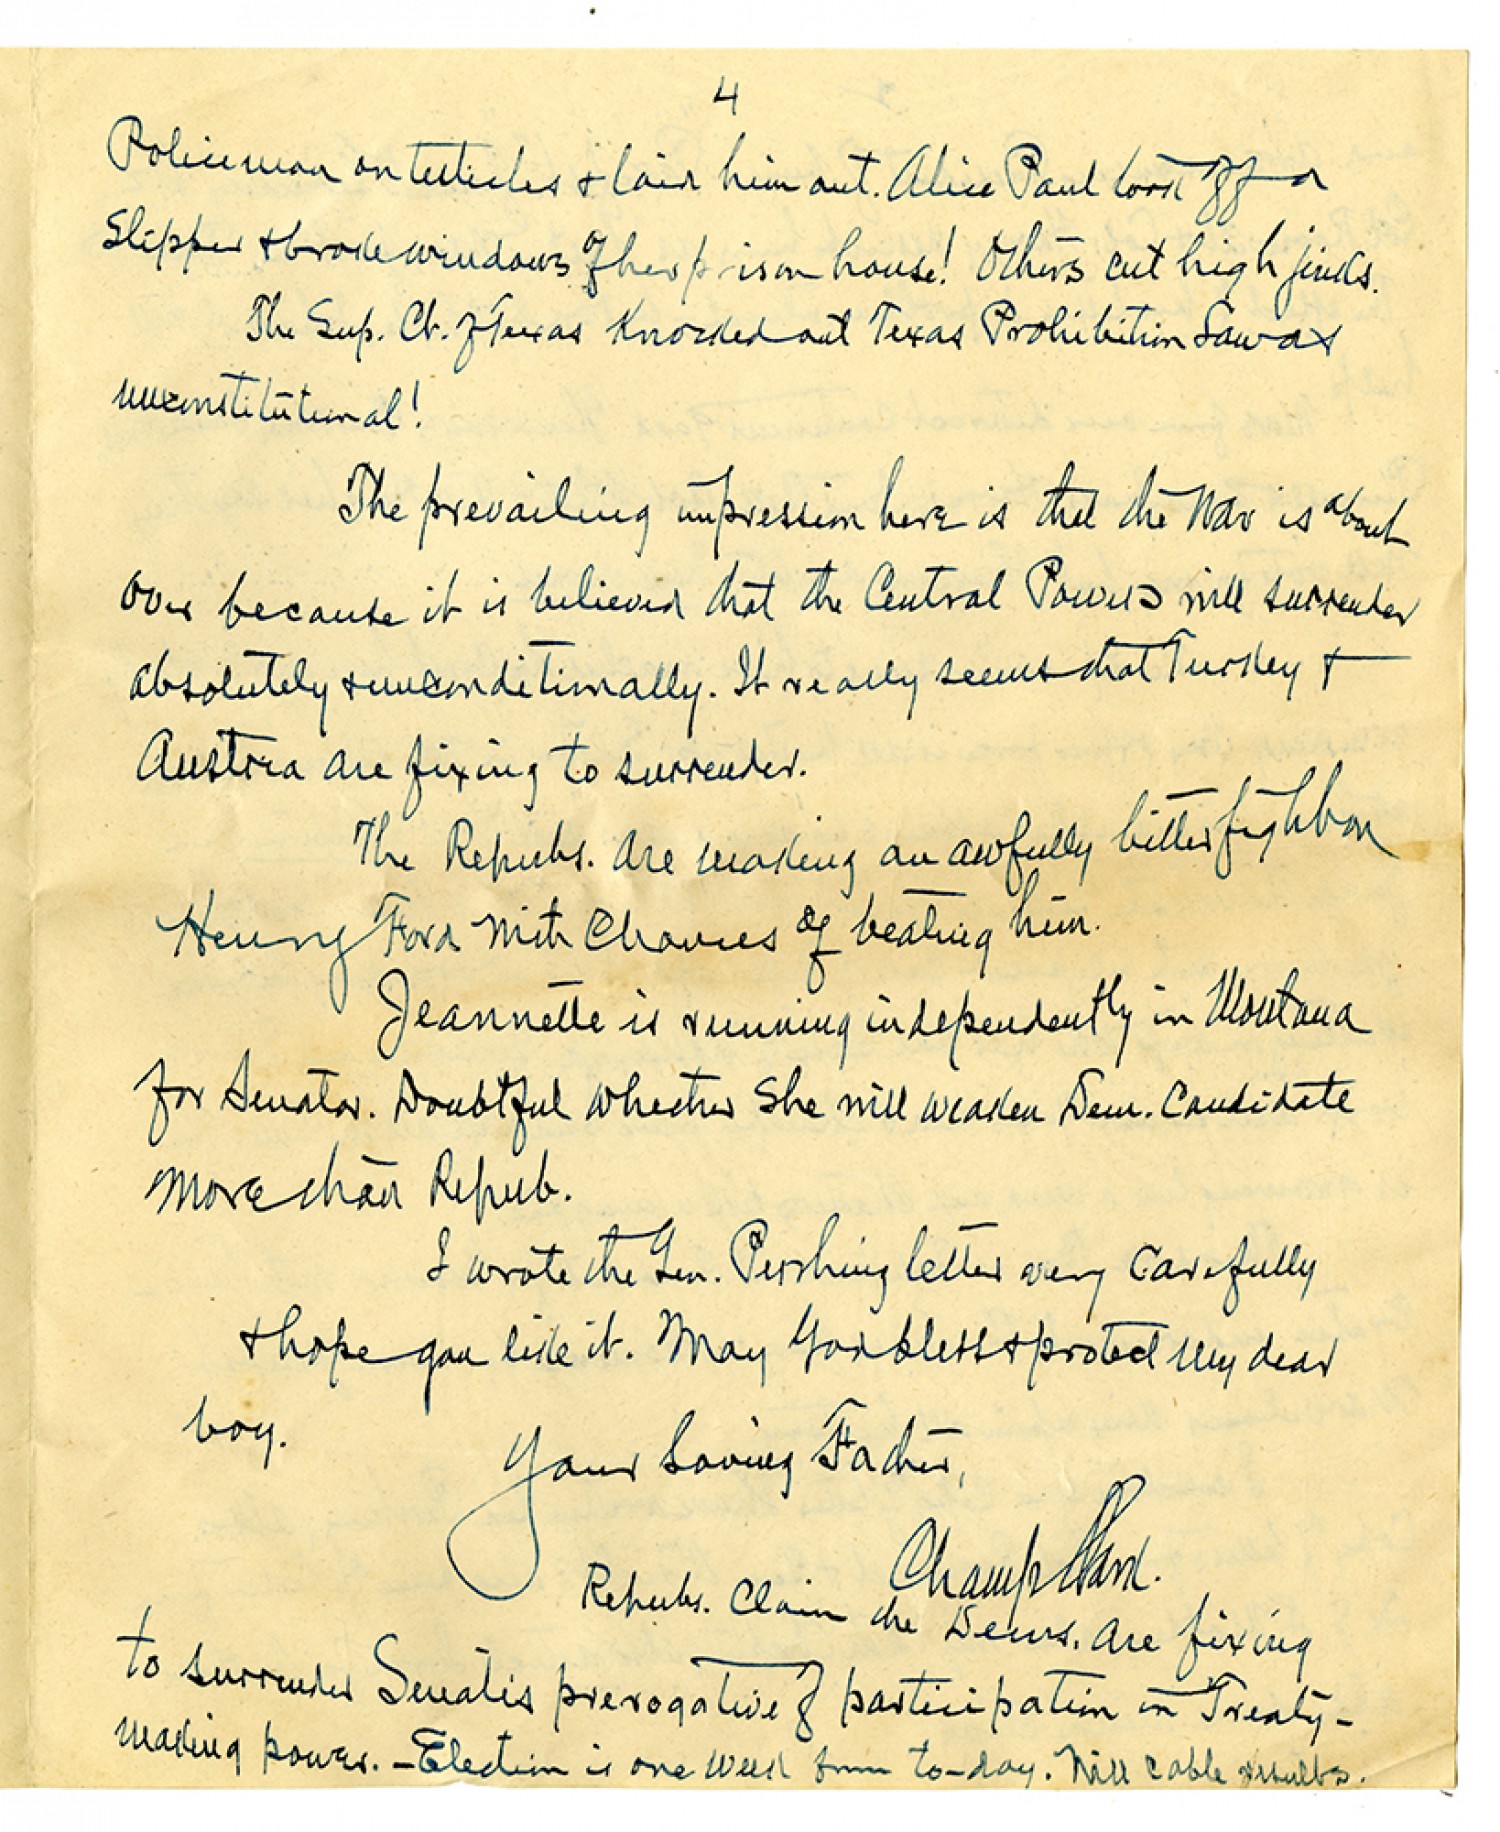 4
Policeman on testicles & laid him out. Alice Paul took off a
Slipper & broke windows of her prison house! Others cut high jinks.
The Sup. Ct. of Texas Knocked out Texas Prohibition Law as
unconstitutional!
The prevailing impression here is that the War is about
over because it is believed that the Central Powers will surrender
absolutely & unconditionally. It really seems that Turkey &
Austria are fixing to surrender.
The Repubs. are making an awfully bitter fight on
Henry Ford with Chances of beating him.
Jeannette is running independently in Montana
for Senator. Doubtful whether she will weaken Dem. Candidate
More than Repub.
I wrote the Gen. Pershing letter very Carefully
& hope you like it. May God bless & protect my dear
boy.
Your Loving Father,
Champ Clark.
Repubs. Claim the Dems. are fixing
to surrender Senate's prerogative of participation in Treaty-
making power. – Election is one week from to-day. Will cable results.